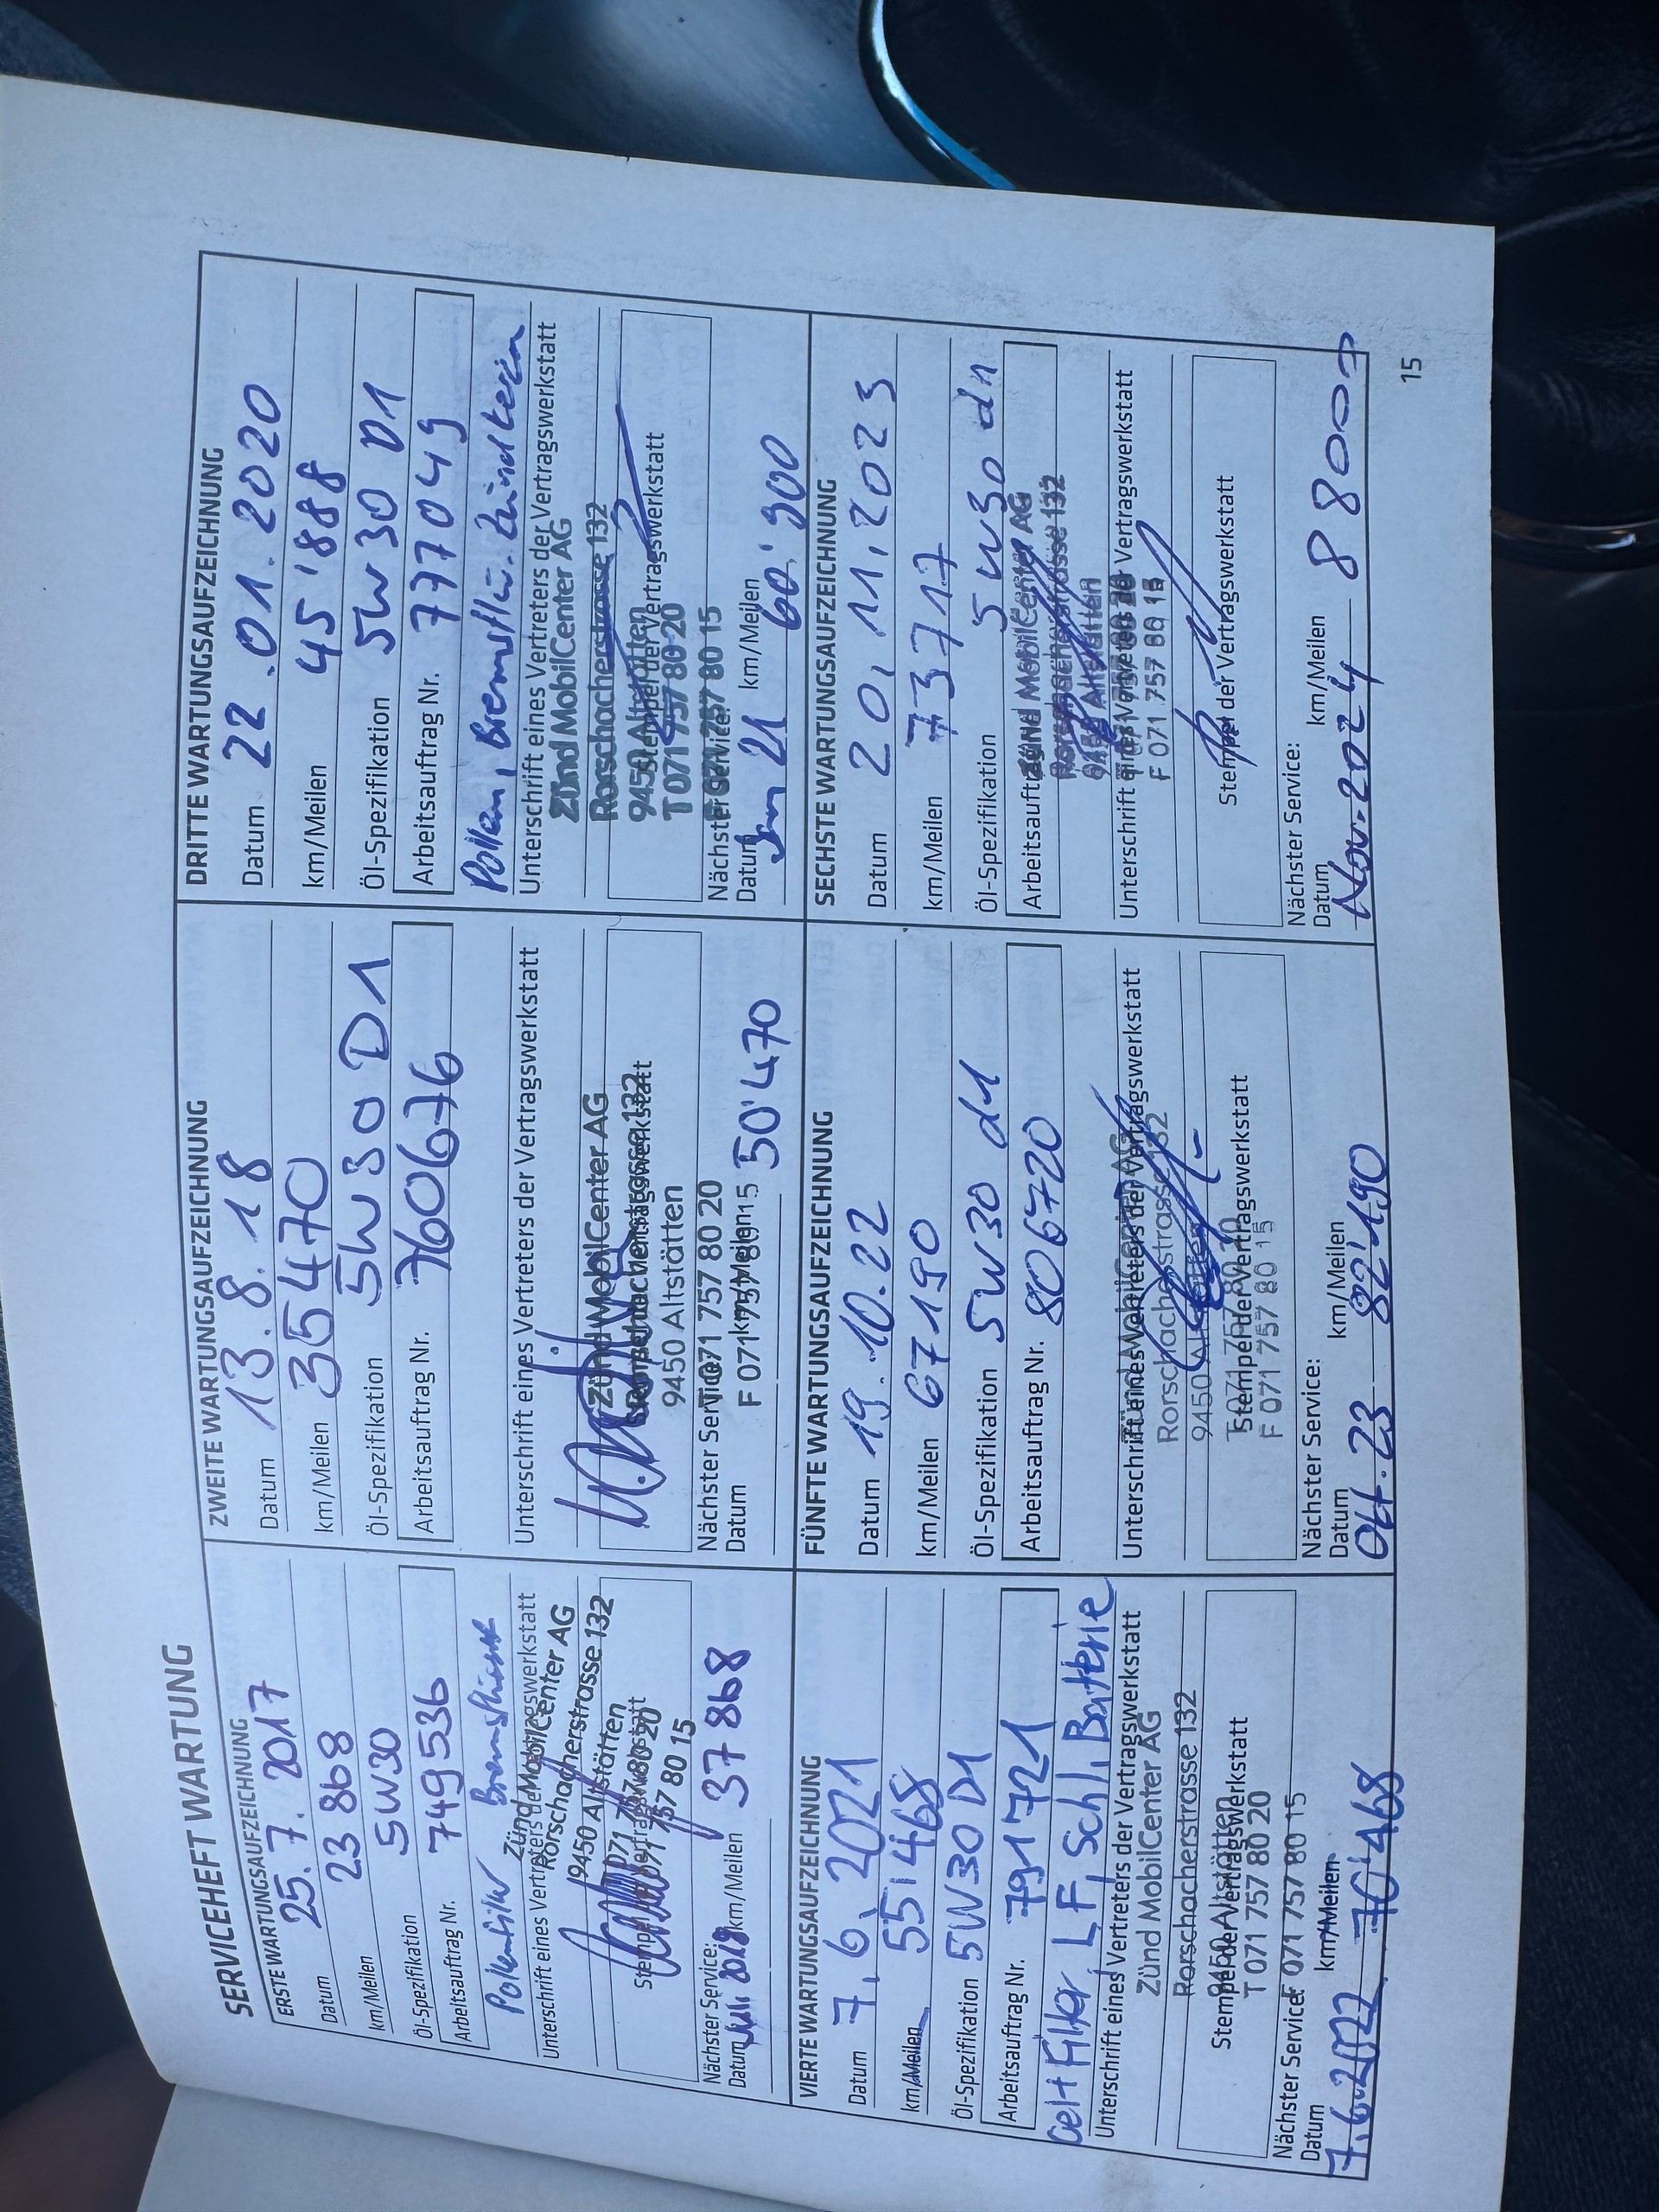 SERVICEHEFT WARTUNG
ERSTE WARTUNGSAUFZEICHNUNG
Datum 25.7.2017
km/Meilen 23868
Öl-Spezifikation 5W30
Arbeitsauftrag Nr. 749536
Unterschrift eines Vertreters der Vertragswerkstatt
Zünd MobilCenter AG
Rorschacherstrasse 132
9450 Altstätten
Stempel der Vertragswerkstatt
T 071 757 80 20
F 071 757 80 15
Nächster Service:
Datum Juli 2018 km/Meilen 37868
ZWEITE WARTUNGSAUFZEICHNUNG
Datum 13.8.18
km/Meilen 35470
Öl-Spezifikation 5W30 D1
Arbeitsauftrag Nr. 760676
Unterschrift eines Vertreters der Vertragswerkstatt
Zünd MobilCenter AG
Rorschacherstrasse 132
Stempel der Vertragswerkstatt
9450 Altstätten
Nächster Service:
T 071 757 80 20
F 071 757 80 15
Datum km/Meilen 50'470
DRITTE WARTUNGSAUFZEICHNUNG
Datum 22.01.2020
km/Meilen 45'888
Öl-Spezifikation 5W30 D1
Arbeitsauftrag Nr. 777049
Pollen, Bremsflü. Zündkerzen
Unterschrift eines Vertreters der Vertragswerkstatt
Zünd MobilCenter AG
Rorschacherstrasse 132
9450 Altstätten
Stempel der Vertragswerkstatt
T 071 757 80 20
F 071 757 80 15
Nächster Service:
Datum Jan 21 km/Meilen 60'900
VIERTE WARTUNGSAUFZEICHNUNG
Datum 7.6.2021
km/Meilen 55'468
Öl-Spezifikation 5W30 D1
Arbeitsauftrag Nr. 791721
Oel+Filter, LF, Schl, Batterie
Unterschrift eines Vertreters der Vertragswerkstatt
Zünd MobilCenter AG
Rorschacherstrasse 132
9450 Altstätten
Stempel der Vertragswerkstatt
T 071 757 80 20
F 071 757 80 15
Nächster Service:
Datum 7.6.2022 km/Meilen 70'468
FÜNFTE WARTUNGSAUFZEICHNUNG
Datum 19.10.22
km/Meilen 67190
Öl-Spezifikation 5W30 d1
Arbeitsauftrag Nr. 806720
Unterschrift eines Vertreters der Vertragswerkstatt
Zünd MobilCenter AG
Rorschacherstrasse 132
9450 Altstätten
T 071 757 80 20
Stempel der Vertragswerkstatt
F 071 757 80 15
Nächster Service:
Datum Okt.23 km/Meilen 82'190
SECHSTE WARTUNGSAUFZEICHNUNG
Datum 20.11.2023
km/Meilen 73717
Öl-Spezifikation 5W30 d1
Zünd MobilCenter AG
Rorschacherstrasse 132
9450 Altstätten
Unterschrift eines Vertreters der Vertragswerkstatt
T 071 757 80 20
F 071 757 80 15
Stempel der Vertragswerkstatt
Nächster Service:
Datum Nov. 2024 km/Meilen
15